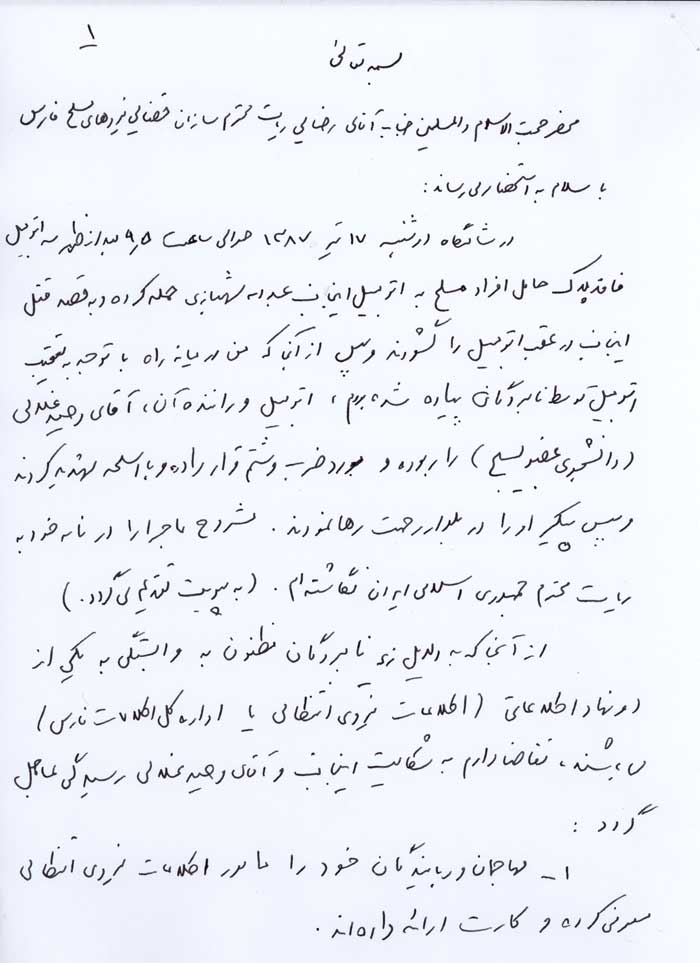 ۱
بسمه تعالی
محضر حجت الاسلام والمسلمین جناب آقای رضایی ریاست محترم سازمان قضایی نیروهای مسلح فارس
با سلام به استحضار می رساند:
در شامگاه دوشنبه ۱۷ تیر ۱۳۸۷ حوالی ساعت ۹٫۵ بعد از ظهر سه اتومبیل
فاقد پلاک حامل افراد مسلح به اتومبیل اینجانب عبدالله شهبازی حمله کرده و به قصد قتل
اینجانب در عقب اتومبیل را گشودند و سپس از آنجا که من در میانه راه با توجه به تعقیب
اتومبیل توسط نامبردگان پیاده شده بودم، اتومبیل و راننده آن، آقای وحید عبدلی
(دانشجوی عضو بسیج) را ربوده و مورد ضرب و شتم قرار داده و با اسلحه تهدید کردند
و سپس پیکر او را در بلوار رحمت رها نمودند. مشروح ماجرا را در نامه خود به
ریاست محترم جمهوری اسلامی ایران نگاشته ام. (به پیوست تقدیم می گردد.)
از آنجا که به دلایل زیر نامبردگان مظنون به وابستگی به یکی از
دو نهاد اطلاعاتی (اطلاعات نیروی انتظامی یا اداره کل اطلاعات فارس)
می باشند، تقاضا دارم به شکایت اینجانب و آقای وحید عبدلی رسیدگی عاجل
گردد:
۱- مهاجمان و ربایندگان خود را مامور اطلاعات نیروی انتظامی
معرفی کرده و کارت ارائه داده اند.